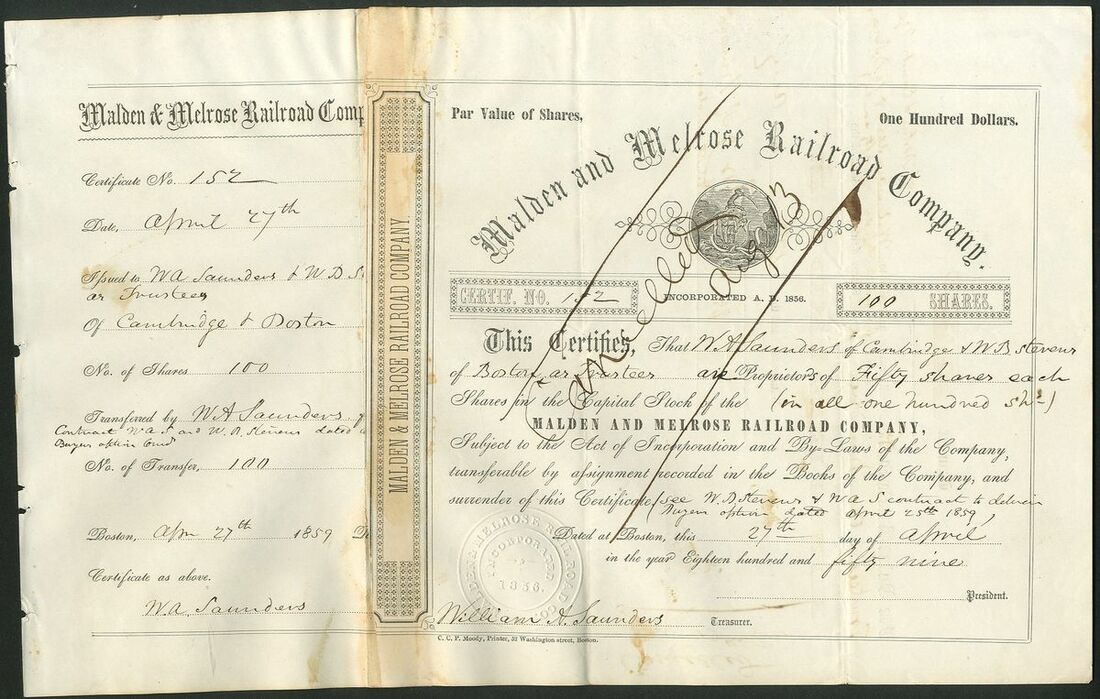 Malden & Melrose Railroad Comp
Certificate No. 152
Date, April 27th
Issued to W A Saunders & W D S
as Trustees
Of Cambridge & Boston
No. of Shares 100
Transferred by W A Saunders
Contract W A S and W. D. Stevens dated
Buyers option
No. of Transfer, 100
Boston, Apr 27th 1859
Certificate as above.
W. A. Saunders
MALDEN & MELROSE RAILROAD COMPANY
Par Value of Shares, One Hundred Dollars.
Malden and Melrose Railroad Company.
Cancelled
Aug 3
CERTIF. NO. 152 INCORPORATED A. D. 1856. 100 SHARES.
This Certifies, That W A Saunders of Cambridge & W D Stevens
of Boston as Trustees are Proprietors of Fifty shares each
Shares in the Capital Stock of the (in all one hundred shs)
MALDEN AND MELROSE RAILROAD COMPANY,
Subject to the Act of Incorporation and By-Laws of the Company,
transferable by assignment recorded in the Books of the Company, and
surrender of this Certificate (see W. D Stevens & W A S contract to deliver
Buyers option dated April 25th 1859)
Dated at Boston, this 27th day of April
in the year Eighteen hundred and fifty nine
President.
William A. Saunders Treasurer.
MELROSE RAILROAD CO.
INCORPORATED
1856.
C. C. P. Moody, Printer, 52 Washington street, Boston.